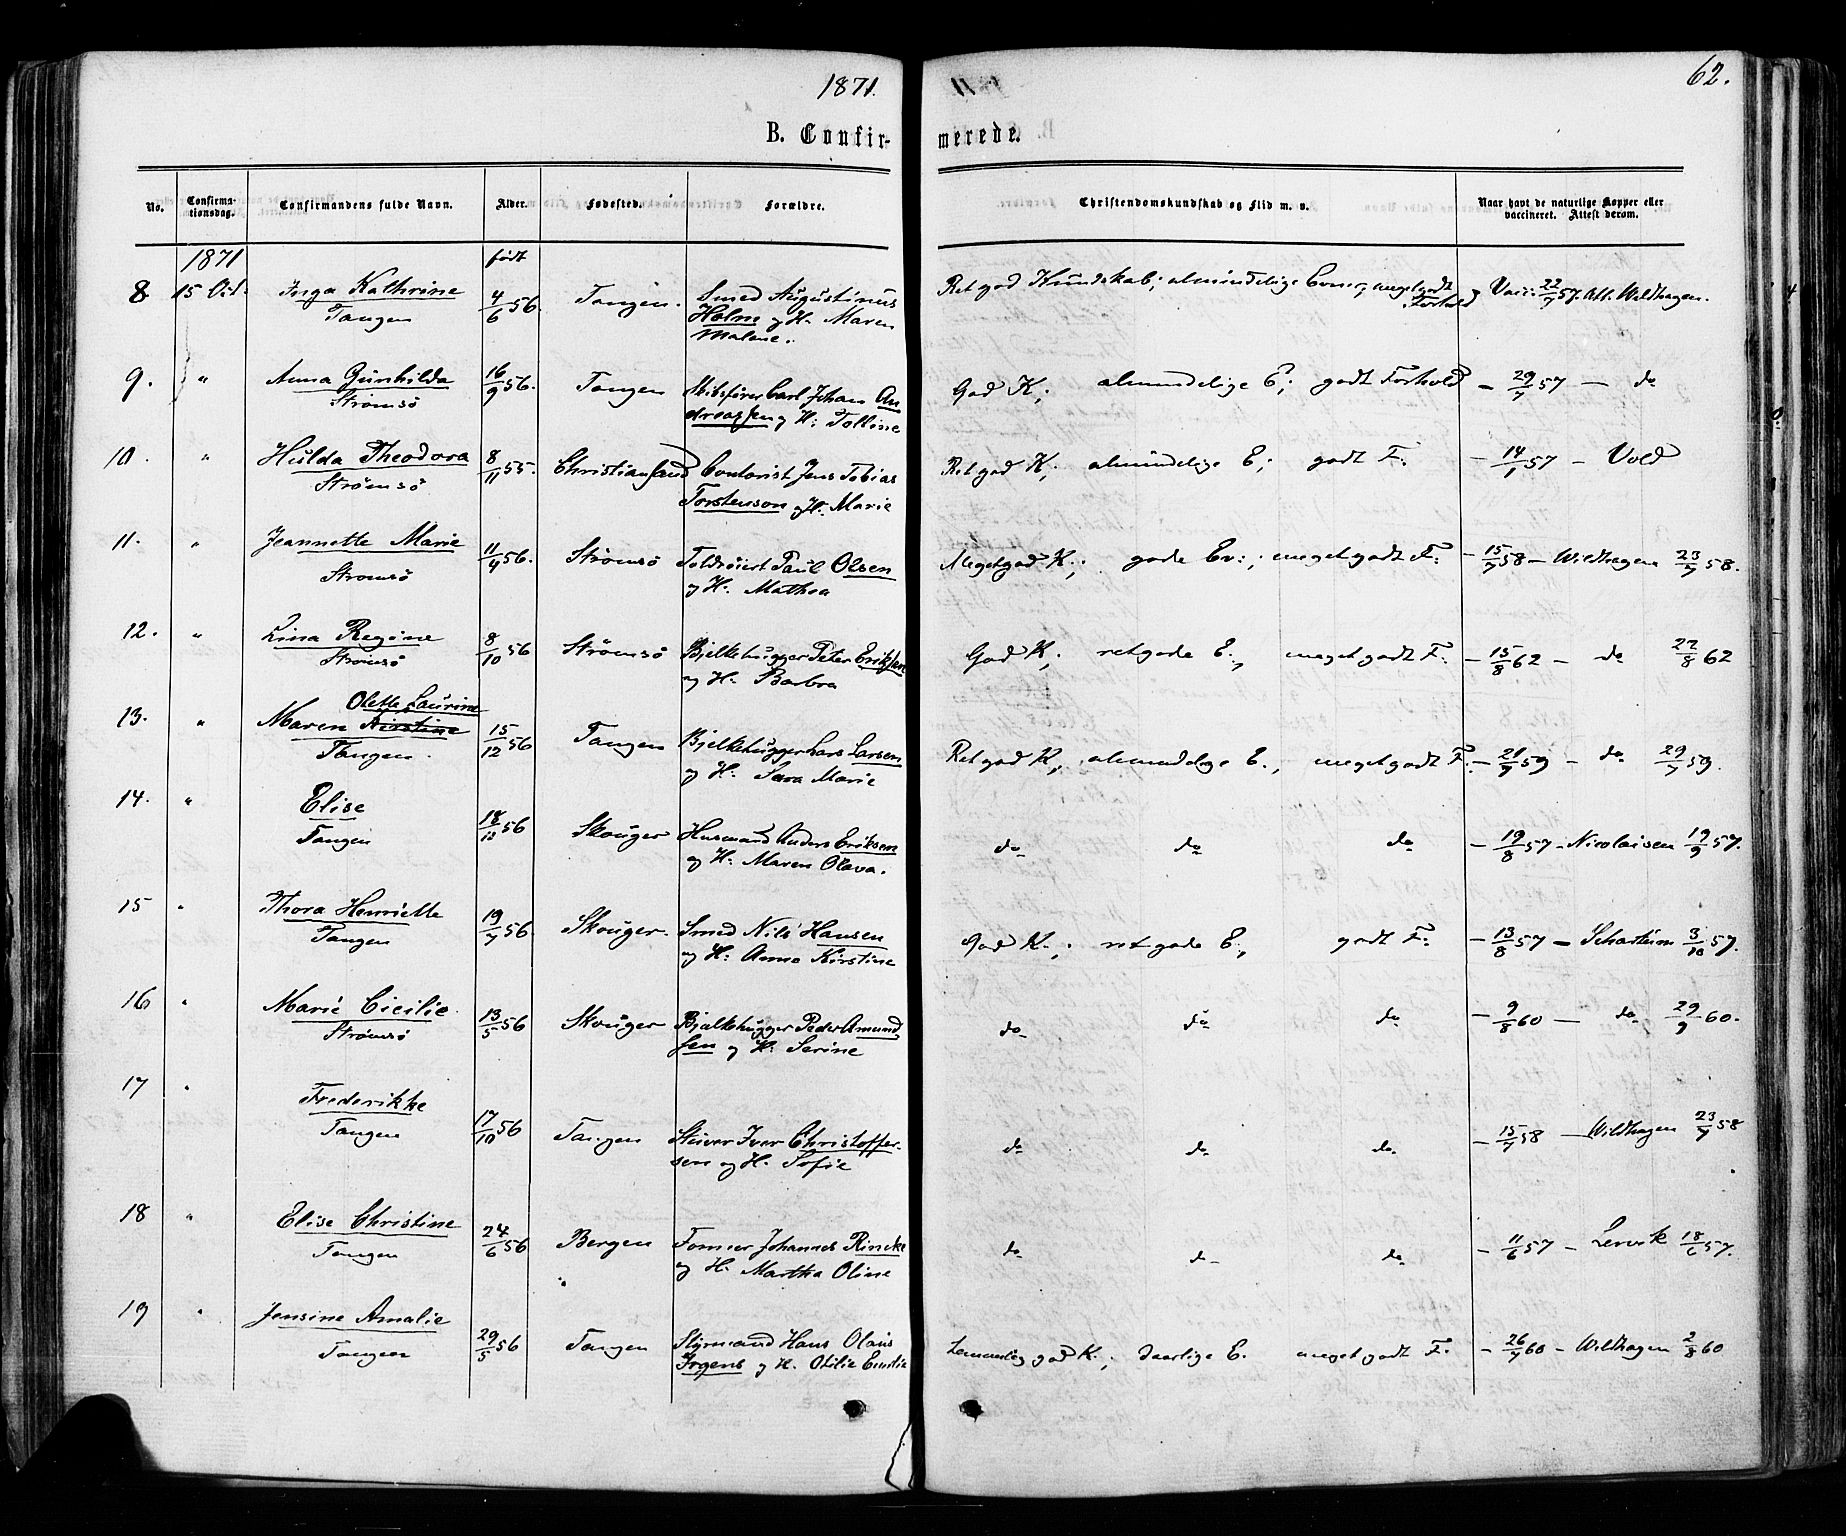 1871.
62.
B. Confirmerede.
No. Confirmationsdag. Confirmandens fulde Navn. Alder. Fødested. Forældre. Christendomskundskab og Flid m. v. Naar havt de naturlige Kopper eller vaccineret. Attest derom.
1871 født
8. 15 Oct. Inga Kathrine 4/6 56. Tangen. Smed Augustinus Ret god Kundskab; almindelige Evner, meget godt Forhold Vacc. 22/7 57. Att. Wildhagen.
Tangen Holm og H. Maren
Malene.
9. " Anna Gunhilda 16/9 56. Tangen Skibsfører Carl Johan An God K; almindelige E; godt Forhold – 29/7 57 – do
Strømsø dreassen og H: Tolline
10. " Hulda Theodora 8/11 55. Christiansand Contorist Jens Tobias Ret god K; almindelige E; godt F: – 14/1 57 – Vold
Strømsø Torstenson og H. Marie
11. " Jeannette Marie 11/4 56. Strømsø Toldrøiert Paul Olsen Meget god K.; gode Ev:; meget godt F: – 15/7 58 – Wildhagen 23/7 58.
Strømsø og H. Mathea
12. " Lina Regine 8/10 56 Strømsø Bjelkehugger Peter Eriksen God K; ret gode E:, meget godt F: – 15/8 62 – do 22/8 62
Strømsø og H. Barbra
Olette Laurine
13. " Maren Kirstine 15/12 56 Tangen Bjelkehugger Lars Larsen Ret god K, almindelige E., meget godt F. – 21/7 59 – do 29/7 59.
Tangen. og H. Sara Marie
14. " Elise 18/12 56 Skouger Husmand Anders Eriksen do do do – 19/8 57 – Nicolaisen 19/9 57.
Tangen og H: Maren Olava.
15 " Thora Henriette 19/7 56. Skouger. Smed Nils Hansen God K.; ret gode E:, godt F: – 13/8 57 – Scharlum 3/10 57.
Tangen og H: Anne Kirstine
16 " Marie Cicilie. 13/5 56 Skouger Bjelkehugger Peder Amund do do do – 9/8 60 – do 29/9 60.
Strømsø sen og H: Serine
17 " Frederikke 17/10 56 Tangen Stuver Iver Christoffer- do do do – 15/7 58 – Wildhagen 23/7 58
Tangen sen og H. Sofie
18 " Elise Christine 24/6 56 Bergen Former Johannes Rincke do do do – 11/6 57 – Lervik 18/6 57.
Tangen og H. Martha Oline
19 " Jensine Amalie 29/5 56 Tangen Styrmand Hans Olaus Temmelig god K.; daarlige E. meget godt F: – 26/7 60 – Wildhagen 2/8 60
Tangen Irgens og H. Otilie Emilie